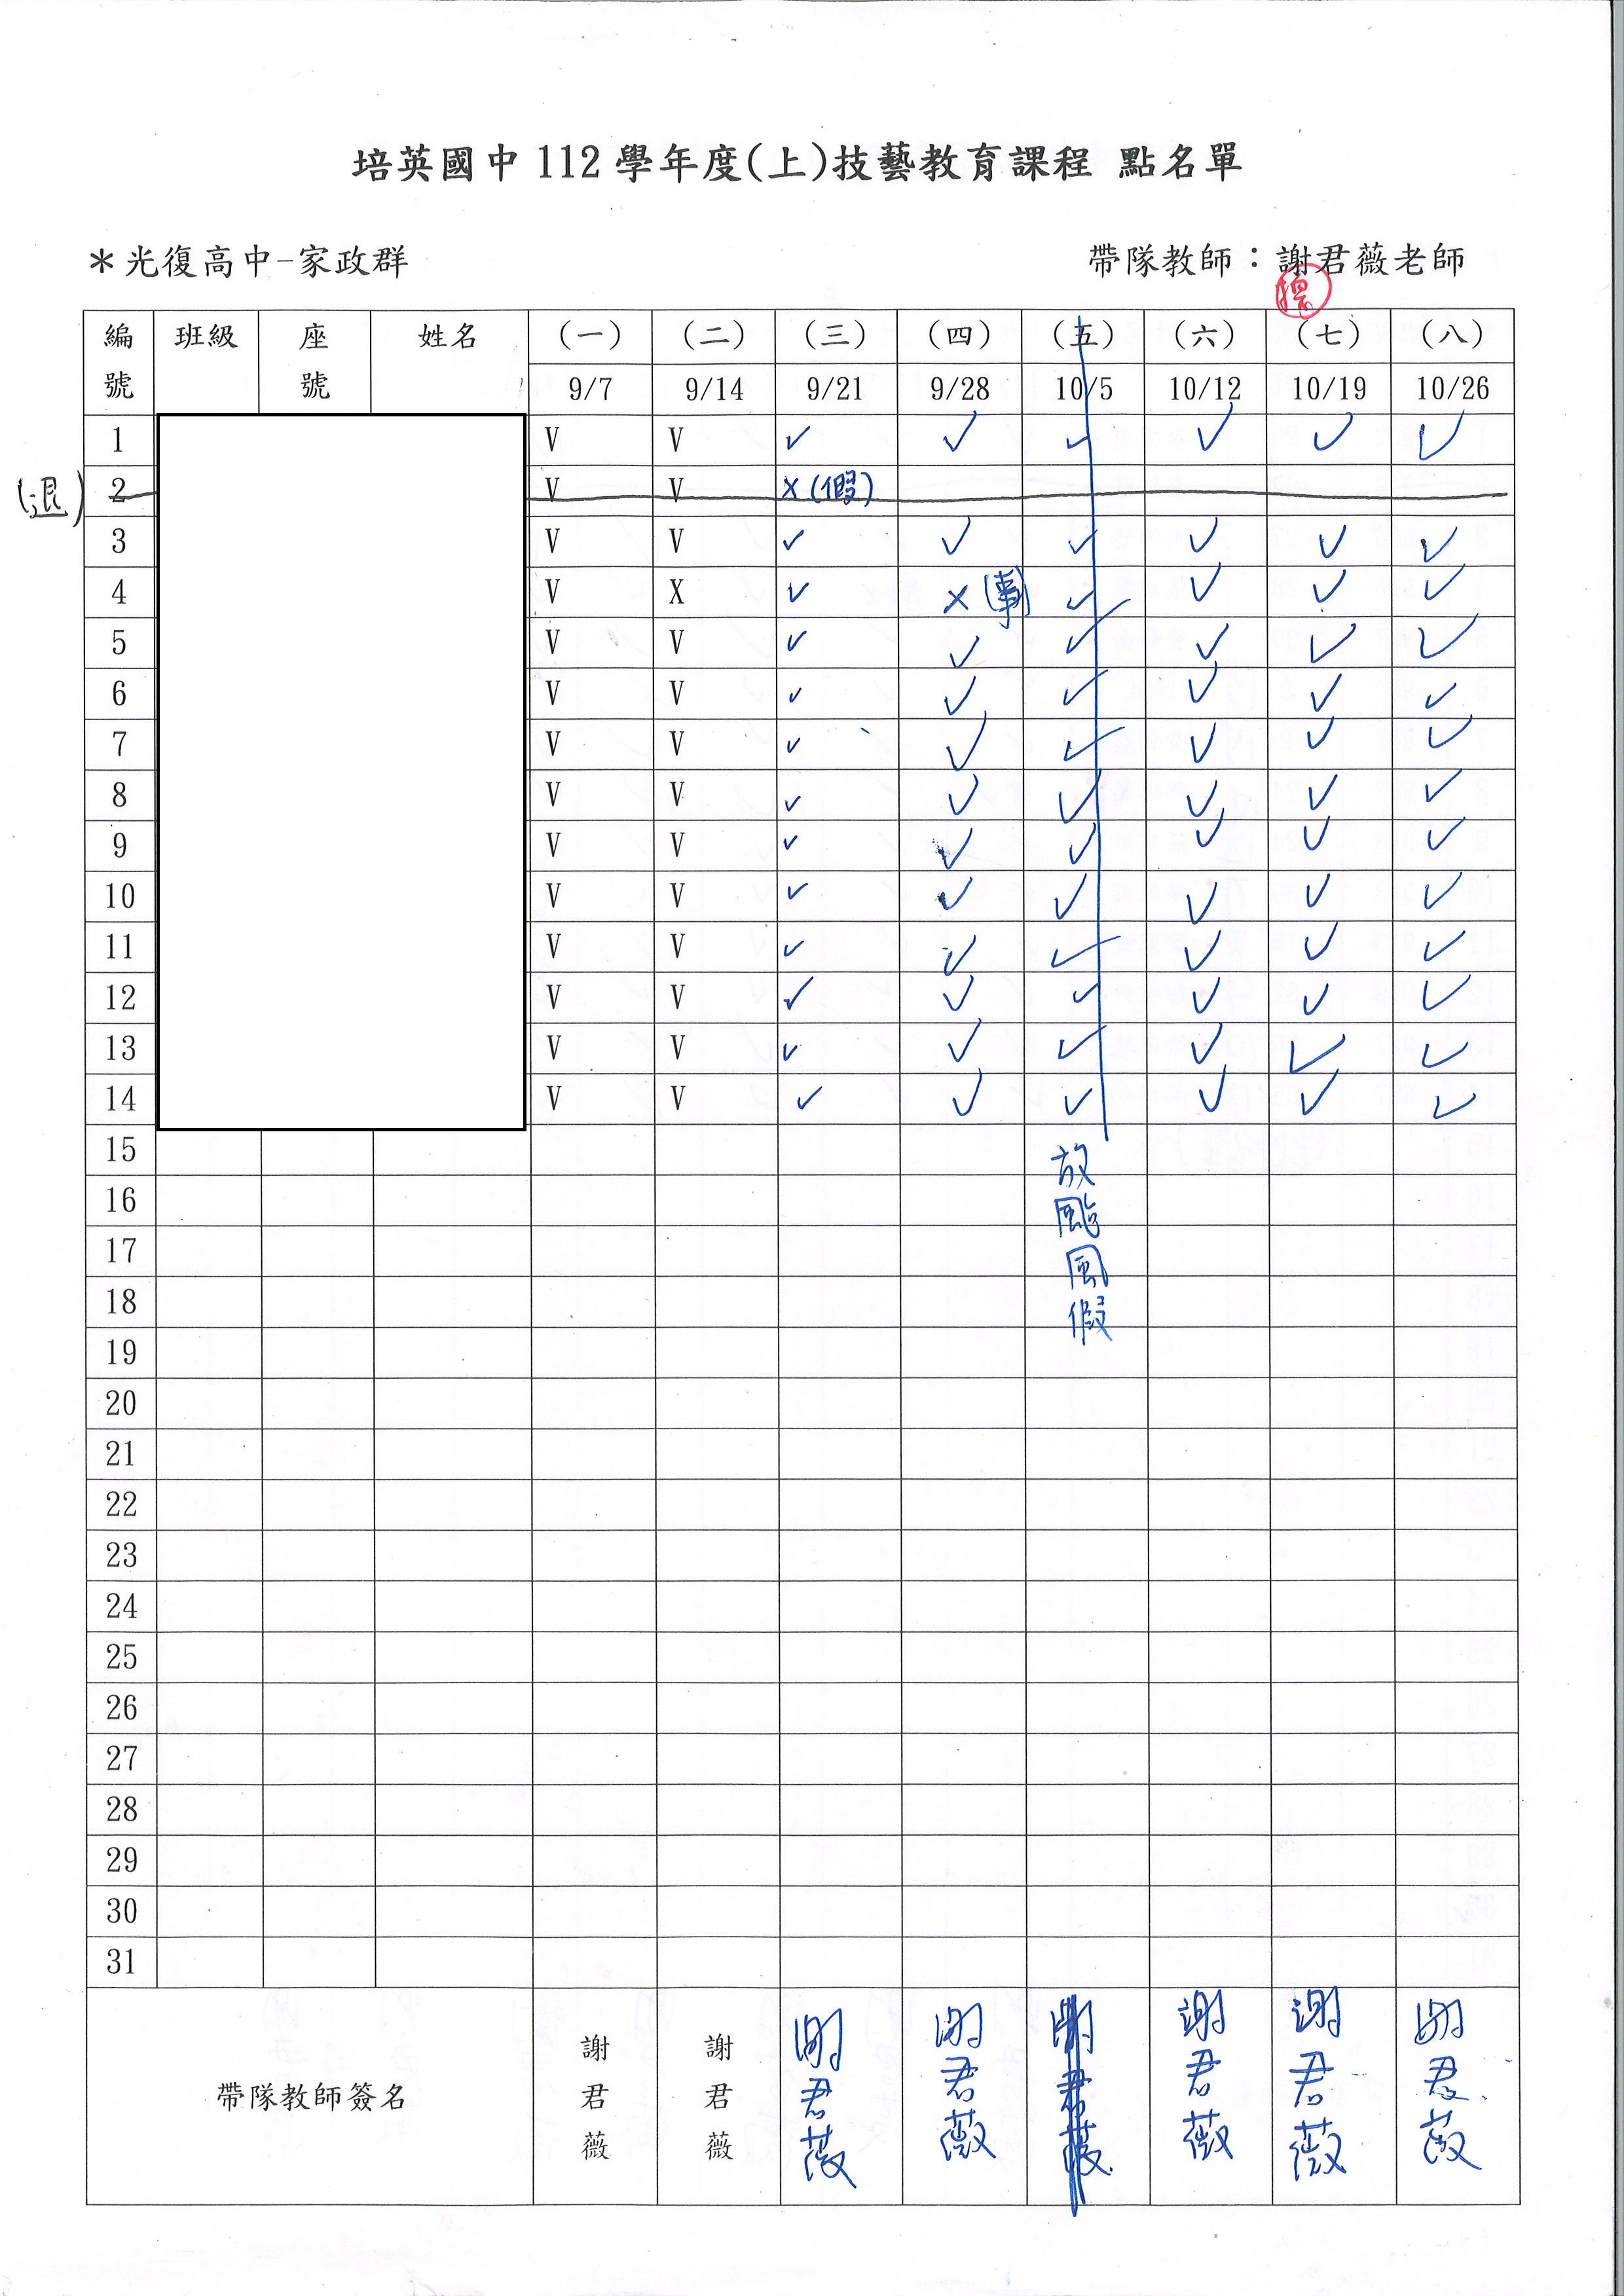 培英國中112學年度(上)技藝教育課程 點名單
＊光復高中-家政群 帶隊教師：謝君薇老師
編號 班級 座號 姓名 (一) (二) (三) (四) (五) (六) (七) (八)
9/7 9/14 9/21 9/28 10/5 10/12 10/19 10/26
1 V V ✓ ✓ ✓ ✓ ✓ ✓
(退) 2 V V X(假)
3 V V ✓ ✓ ✓ ✓ ✓ ✓
4 V X ✓ X(事) ✓ ✓ ✓ ✓
5 V V ✓ ✓ ✓ ✓ ✓ ✓
6 V V ✓ ✓ ✓ ✓ ✓ ✓
7 V V ✓ ✓ ✓ ✓ ✓ ✓
8 V V ✓ ✓ ✓ ✓ ✓ ✓
9 V V ✓ ✓ ✓ ✓ ✓ ✓
10 V V ✓ ✓ ✓ ✓ ✓ ✓
11 V V ✓ ✓ ✓ ✓ ✓ ✓
12 V V ✓ ✓ ✓ ✓ ✓ ✓
13 V V ✓ ✓ ✓ ✓ ✓ ✓
14 V V ✓ ✓ ✓ ✓ ✓ ✓
放颱風假
15
16
17
18
19
20
21
22
23
24
25
26
27
28
29
30
31
帶隊教師簽名 謝君薇 謝君薇 謝君薇 謝君薇 謝君薇 謝君薇 謝君薇 謝君薇